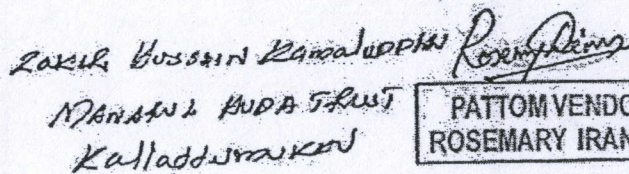 ZAKIR HUSSAIN KamalUDDIN
MANARUL HUDA TRUST
PATTOM VENDO
ROSEMARY IRAN